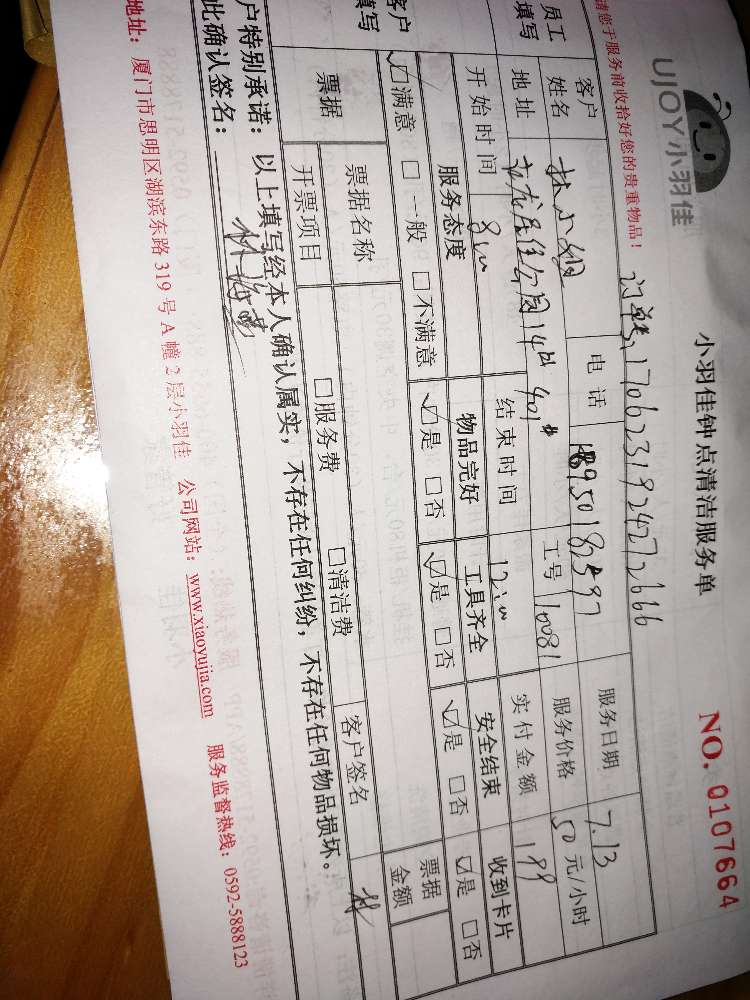 UJOY小羽佳
小羽佳钟点清洁服务单
NO. 0107664
请您于服务前收拾好您的贵重物品！
订单号 170623192427266 6
员工填写
客户姓名 林小姐 电话 18950182597 服务日期 7.13
地址 14# 401# 工号 10081 服务价格 50 元/小时
开始时间 8:00 结束时间 12:00 实付金额 199
客户填写
服务态度 物品完好 工具齐全 安全结束 收到卡片
☑满意 □一般 □不满意 ☑是 □否 ☑是 □否 ☑是 □否 ☑是 □否
票据 票据名称 客户签名 林 票据金额
开票项目 □服务费 □清洁费
户特别承诺：以上填写经本人确认属实，不存在任何纠纷，不存在任何物品损坏。
此确认签名：
地址：厦门市思明区湖滨东路 319 号 A 幢 2 层小羽佳 公司网站：www.xiaoyujia.com 服务监督热线：0592-5888123